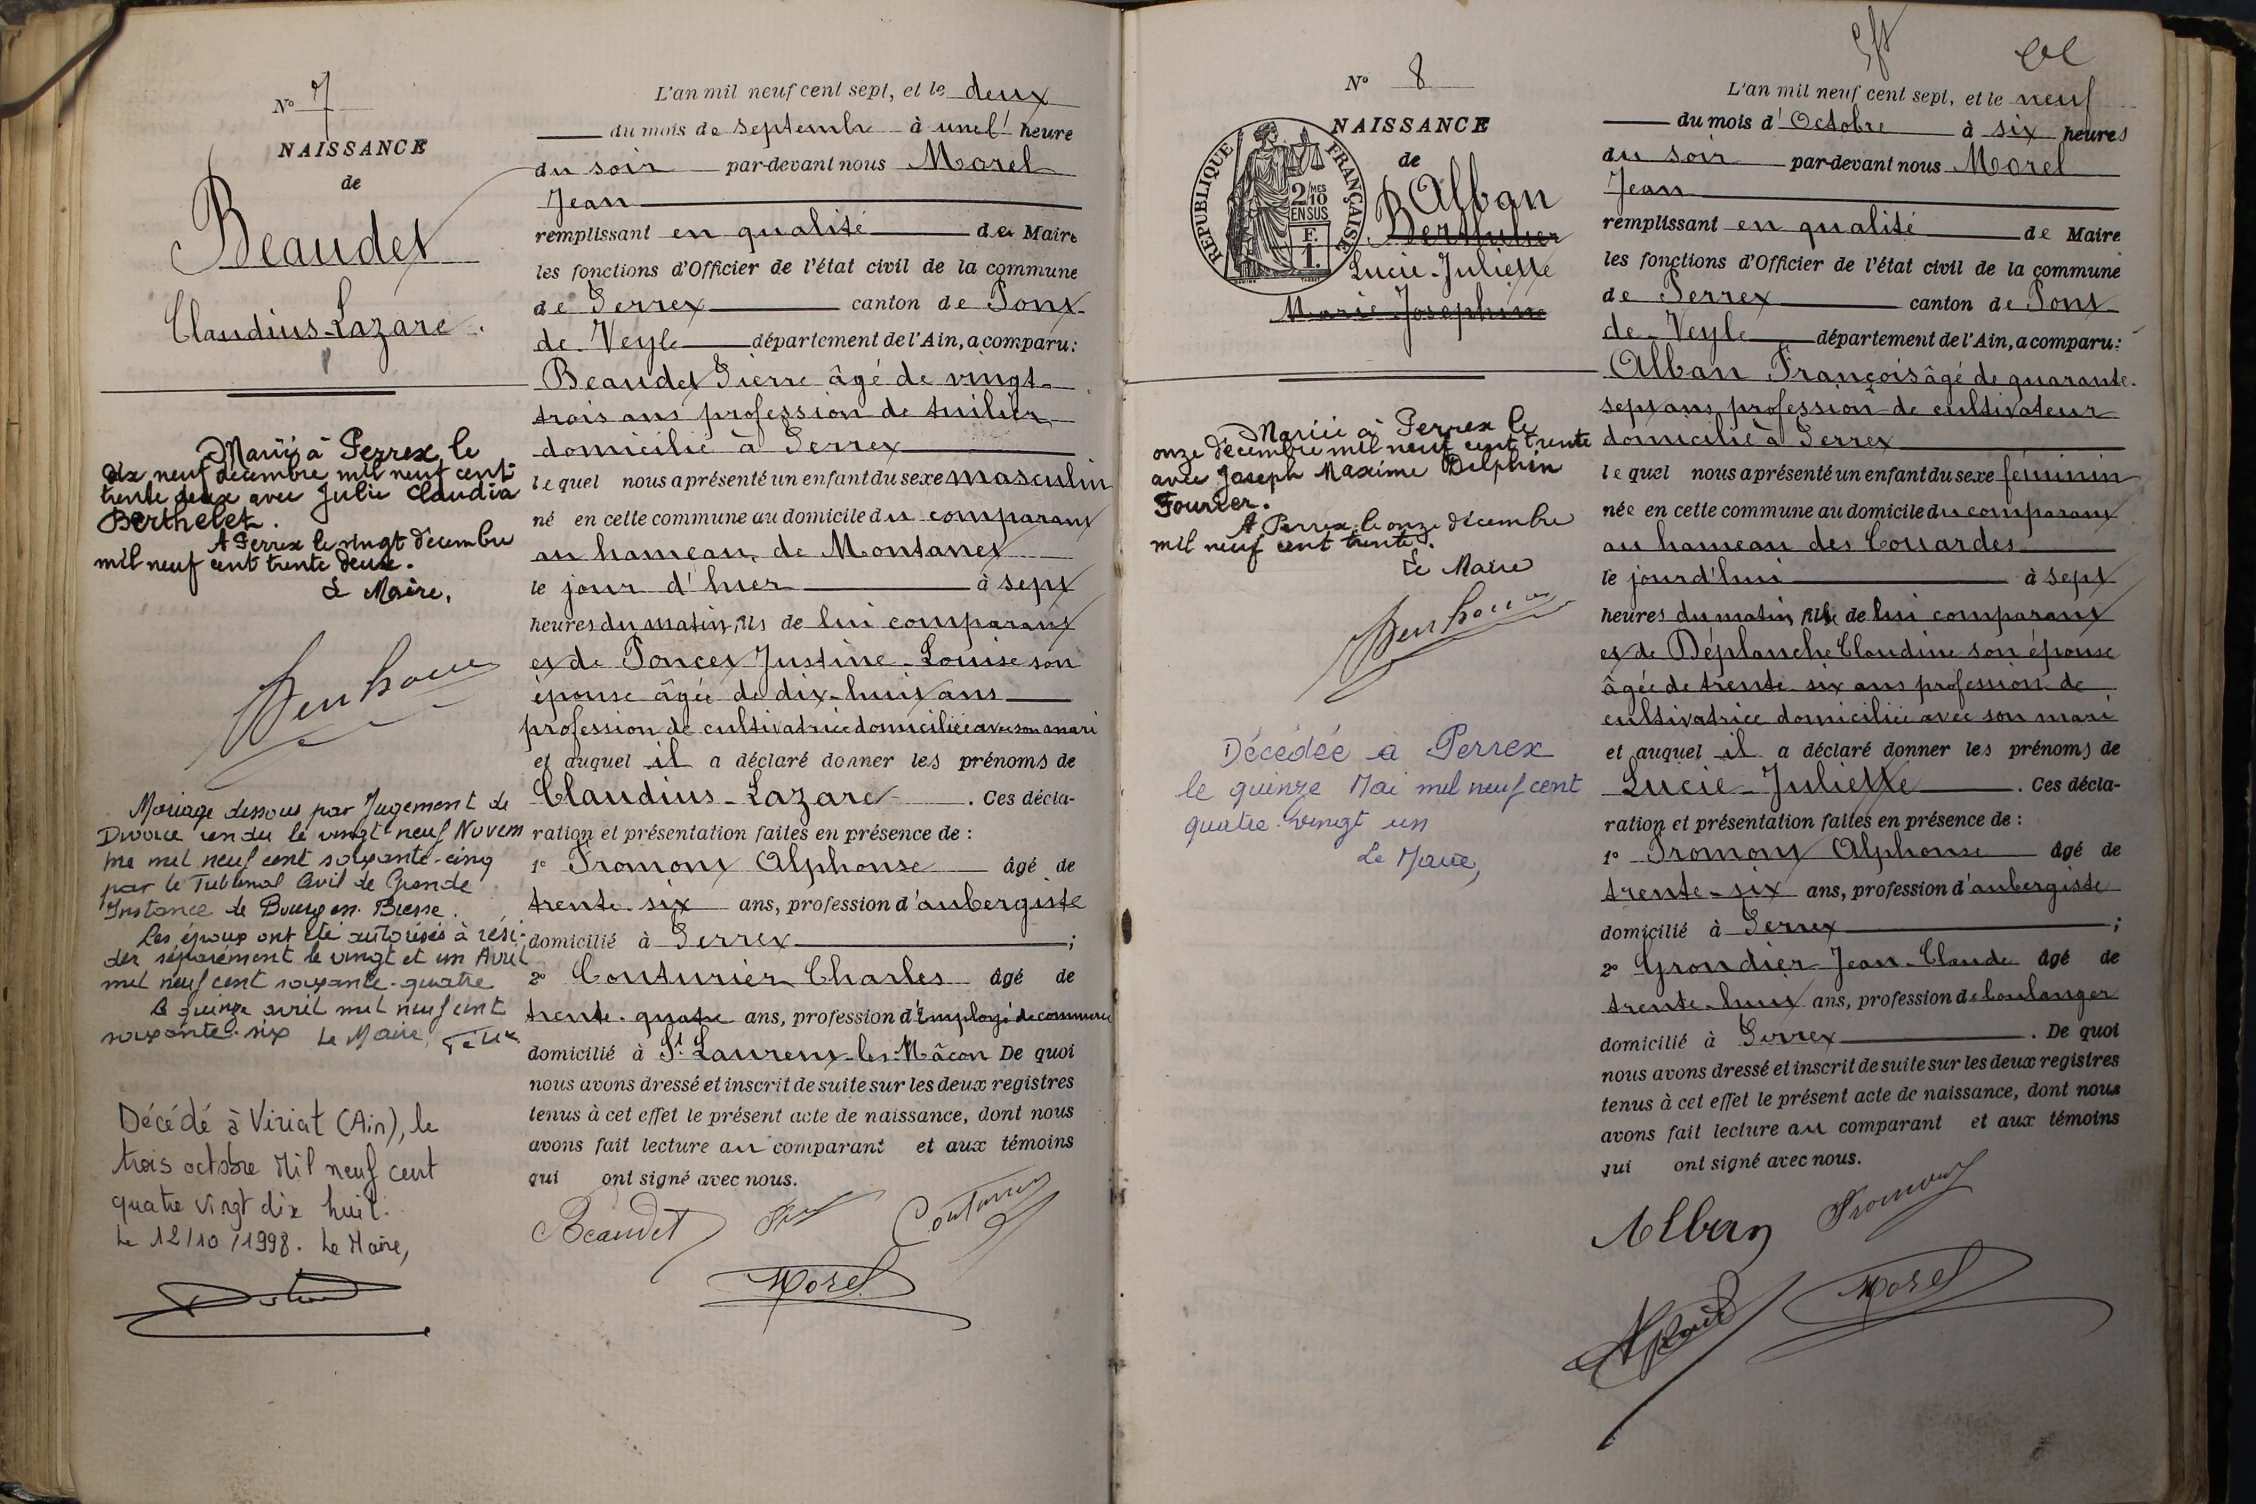 N° 7
NAISSANCE
de
Beaudet
Claudius-Lazare.
Marié à Perrex, le
dix neuf décembre mil neuf cent
trente deux avec Julie Claudia
Berthelet.
A Perrex le vingt décembre
mil neuf cent trente deux.
Le Maire,
Mariage dissous par Jugement de
Divorce rendu le vingt-neuf Novem
bre mil neuf cent soixante-cinq
par le Tribunal Civil de Grande
Instance de Bourg en Bresse.
Les époux ont été autorisés à rési-
der séparément le vingt et un Avril
mil neuf cent soixante-quatre
Le quinze avril mil neuf cent
soixante-six Le Maire,
Décédé à Viriat (Ain), le
trois octobre Mil neuf cent
quatre vingt dix huit.
Le 12/10/1998. Le Maire,
L'an mil neuf cent sept, et le deux
du mois de septembre à une heure
du soir par-devant nous Morel
Jean
remplissant en qualité de Maire
les fonctions d'Officier de l'état civil de la commune
de Perrex canton de Pont
de Veyle département de l'Ain, a comparu:
Beaudet Pierre âgé de vingt
trois ans profession de tuilier
domicilié à Perrex
lequel nous a présenté un enfant du sexe masculin
né en cette commune au domicile du comparant
au hameau de Montanet
le jour d'hier à sept
heures du matin, fils de lui comparant
et de Poncet Justine-Louise son
épouse âgée de dix-huit ans
profession de cultivatrice domiciliée avec son mari
et auquel il a déclaré donner les prénoms de
Claudius-Lazare. Ces décla-
ration et présentation faites en présence de :
1° Fromont Alphonse âgé de
trente-six ans, profession d'aubergiste
domicilié à Perrex ;
2° Couturier Charles âgé de
trente-quatre ans, profession d'Employé de commerce
domicilié à St Laurent-les-Mâcon De quoi
nous avons dressé et inscrit de suite sur les deux registres
tenus à cet effet le présent acte de naissance, dont nous
avons fait lecture au comparant et aux témoins
qui ont signé avec nous.
Beaudet Couturier
Morel
N° 8
NAISSANCE
de
REPUBLIQUE FRANÇAISE
2/10 MES
EN SUS
F.
1.
Alban
Berthelier
Lucie-Juliette
Marie Joséphine
Mariée à Perrex le
onze décembre mil neuf cent trente
avec Joseph Maxime Delphin
Fourrer.
A Perrex, le onze décembre
mil neuf cent trente.
Le Maire
Décédée à Perrex
le quinze Mai mil neuf cent
quatre-vingt un
Le Maire,
L'an mil neuf cent sept, et le neuf
du mois d'Octobre à six heures
du soir par-devant nous Morel
Jean
remplissant en qualité de Maire
les fonctions d'Officier de l'état civil de la commune
de Perrex canton de Pont
de Veyle département de l'Ain, a comparu:
Alban François âgé de quarante-
sept ans, profession de cultivateur
domicilié à Perrex
lequel nous a présenté un enfant du sexe féminin
née en cette commune au domicile du comparant
au hameau des Couardes
le jourd'hui à sept
heures du matin, fille de lui comparant
et de Déplanche Claudine son épouse
âgée de trente-six ans profession de
cultivatrice domiciliée avec son mari
et auquel il a déclaré donner les prénoms de
Lucie-Juliette. Ces décla-
ration et présentation faites en présence de :
1° Fromont Alphonse âgé de
trente-six ans, profession d'aubergiste
domicilié à Perrex ;
2° Grondier Jean-Claude âgé de
trente-huit ans, profession de boulanger
domicilié à Perrex. De quoi
nous avons dressé et inscrit de suite sur les deux registres
tenus à cet effet le présent acte de naissance, dont nous
avons fait lecture au comparant et aux témoins
qui ont signé avec nous.
Alban Fromont
Morel